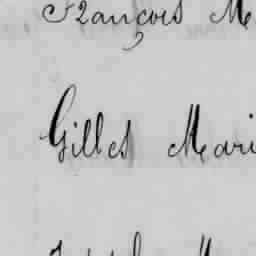 François M
Gilles Mari